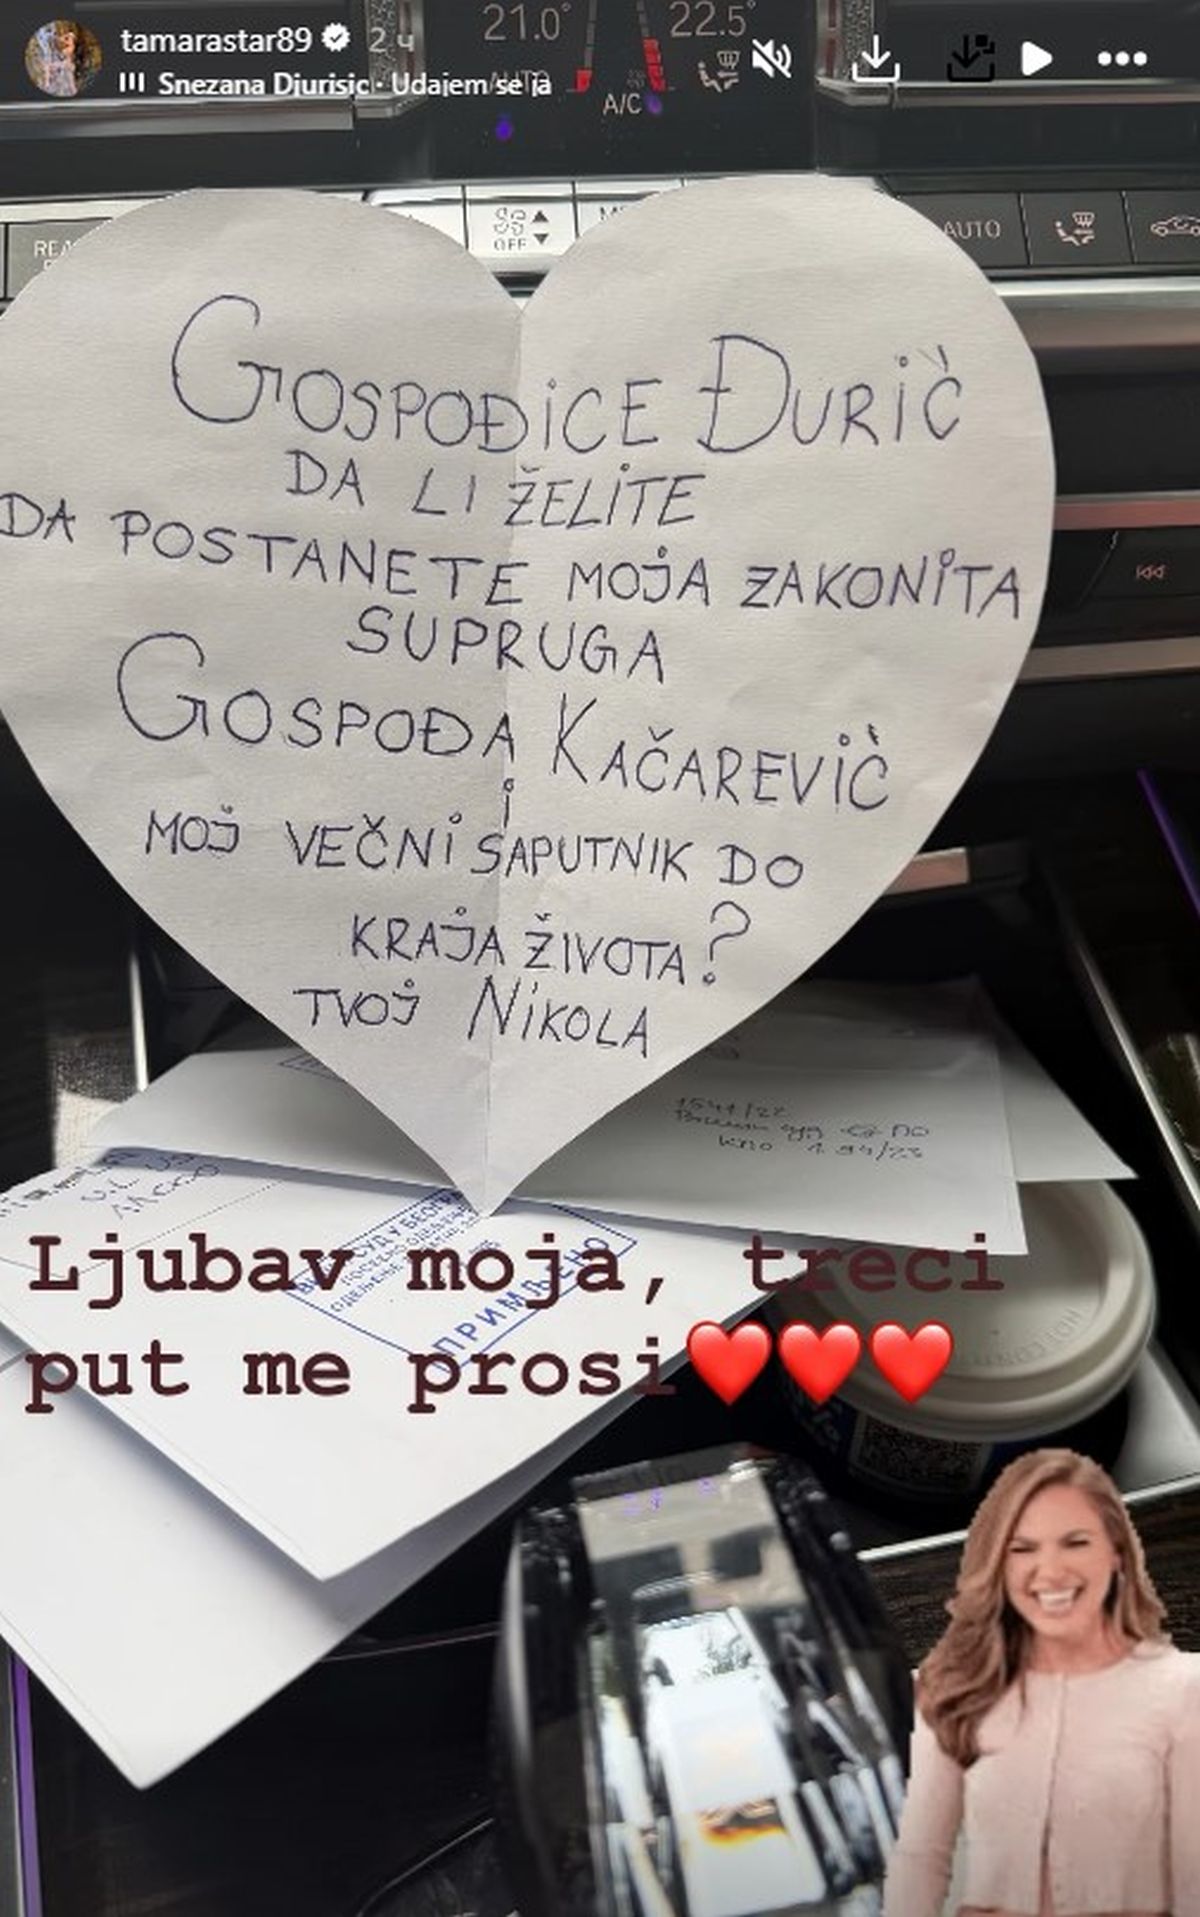 tamarastar89 2 ч
Snezana Djurisic · Udajem se ja
21.0°
22.5°
AUTO
A/C
OFF
AUTO
GOSPOĐICE ĐURIĆ
DA LI ŽELITE
DA POSTANETE MOJA ZAKONITA
SUPRUGA
GOSPOĐA KAČAREVIĆ
i
MOJ VEČNI SAPUTNIK DO
KRAJA ŽIVOTA?
TVOJ NIKOLA
1541/22
КПО 1 94/23
СУД У БЕОГРА
ПРИМЉЕНО
Ljubav moja, treci
put me prosi❤️❤️❤️